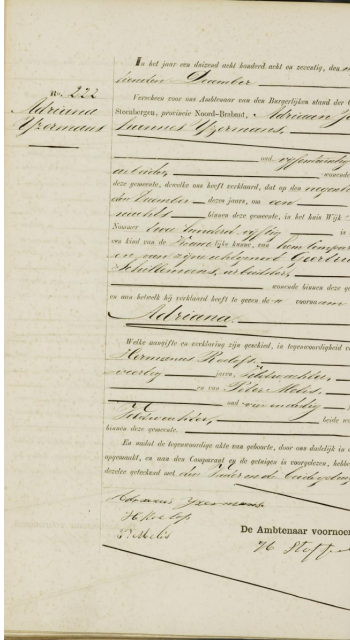 In het jaar een duizend acht honderd acht en zeventig, den
December
No. 222
Adriana
Yzermans
Verscheen voor ons Ambtenaar van den Burgerlijken stand der
Steenbergen, provincie Noord-Brabant, Adriaan
Yzermans.
oud vijfentwintig
arbeider, wonende
deze gemeente, dewelke ons heeft verklaard, dat op den negentien
den December dezes jaars, om een
nachts binnen deze gemeente, in het huis Wijk
Nommer twee honderd vijftig is
een kind van de Vrouwelijke kunne, van hem Comparant
en van zijne echtgenoot Geertrui
Schillemans, arbeidster,
wonende binnen deze
en aan hetwelk hij verklaard heeft te geven de voornaam
Adriana.
Welke aangifte en verklaring zijn geschied, in tegenwoordigheid
Hermanus Roelofs,
veertig jaren, Veldwachter,
en van Peter Melis,
oud
Veldwachter, beide
binnen deze gemeente.
En omdat de tegenwoordige akte van geboorte, door ons dadelijk in
opgemaakt, en aan den Comparant en de getuigen is voorgelezen, hebben
dezelve geteekend met den Vader en de beide getuigen
Adrianus Yzermans
H Roelofs
P Melis
De Ambtenaar voornoemd